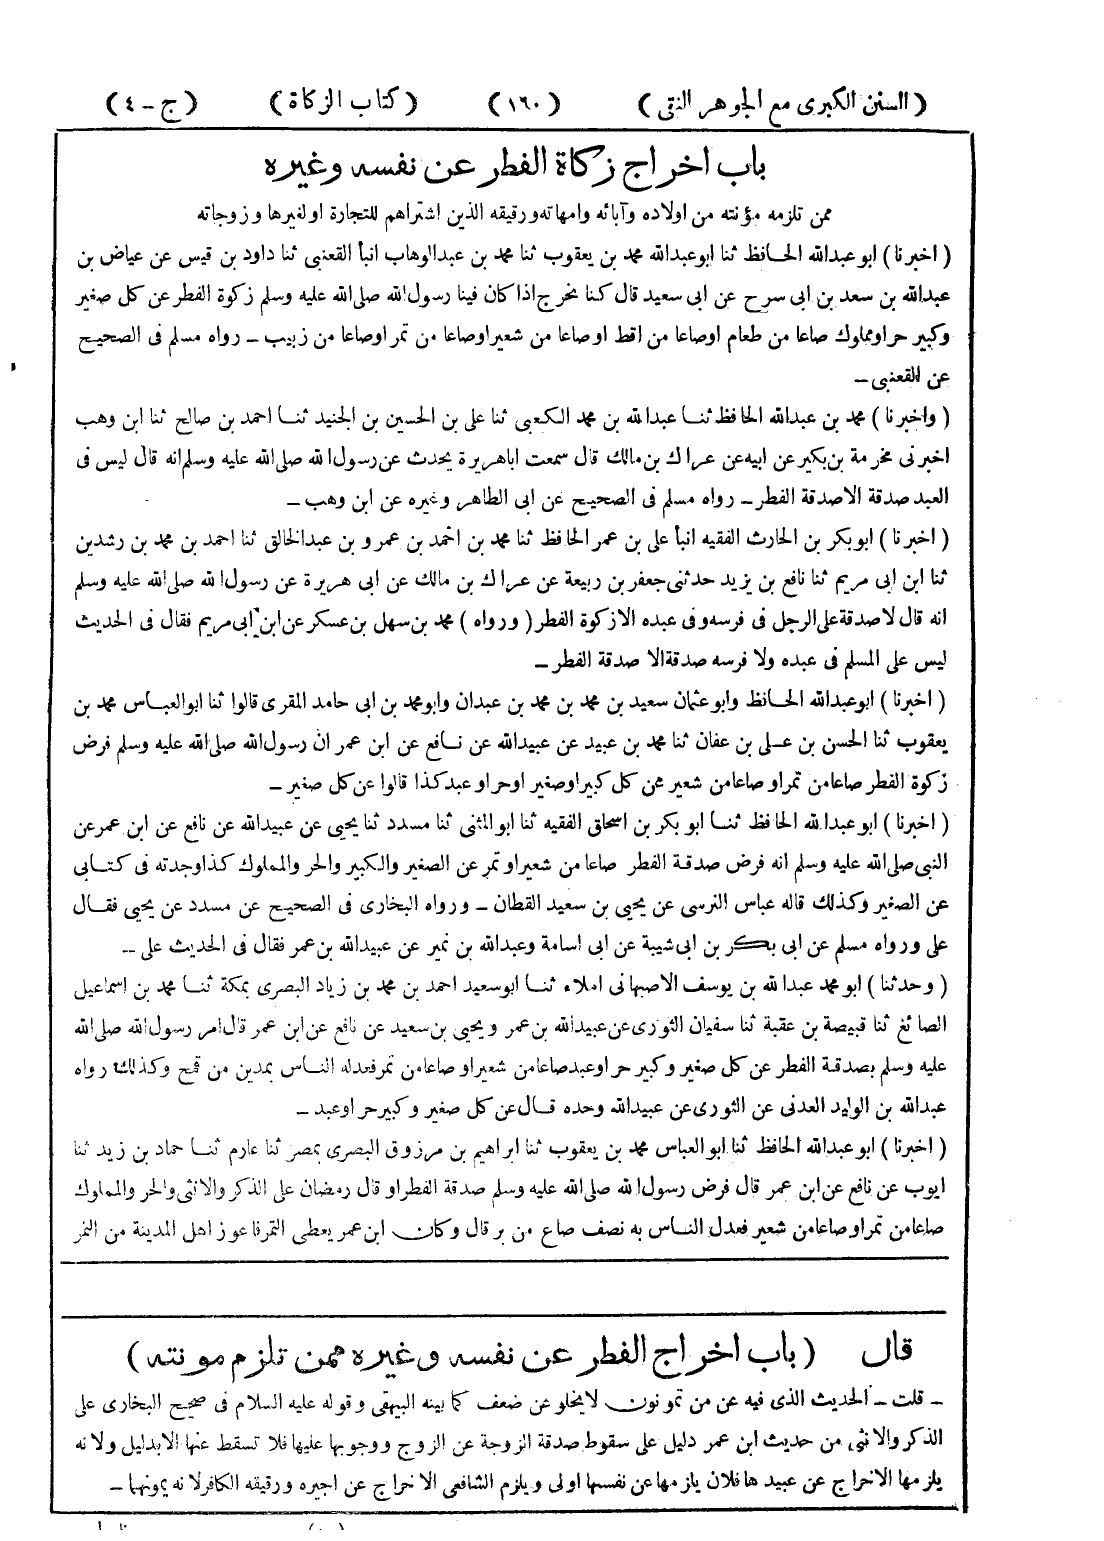 ( السنن الكبرى مع الجوهر النقى ) ( ١٦٠ ) ( كتاب الزكاة ) ( ج - ٤ )
باب اخراج زكاة الفطر عن نفسه وغيره
ممن تلزمه مؤنته من اولاده وآبائه وامهاته ورقيقه الذين اشتراهم للتجارة او لغيرها وزوجاته
( اخبرنا ) ابو عبد الله الحافظ ثنا ابو عبد الله محمد بن يعقوب ثنا محمد بن عبد الوهاب انبأ القعنبى ثنا داود بن قيس عن عياض بن
عبد الله بن سعد بن ابى سرح عن ابى سعيد قال كنا نخرج اذا كان فينا رسول الله صلى الله عليه وسلم زكوة الفطر عن كل صغير
وكبير حر او مملوك صاعا من طعام او صاعا من اقط او صاعا من شعير او صاعا من تمر او صاعا من زبيب - رواه مسلم فى الصحيح
عن القعنبى -
( واخبرنا ) محمد بن عبد الله الحافظ ثنا عبد الله بن محمد الكعبى ثنا على بن الحسين بن الجنيد ثنا احمد بن صالح ثنا ابن وهب
اخبرنى مخرمة بن بكير عن ابيه عن عراك بن مالك قال سمعت ابا هريرة يحدث عن رسول الله صلى الله عليه وسلم انه قال ليس فى
العبد صدقة الا صدقة الفطر - رواه مسلم فى الصحيح عن ابى الطاهر وغيره عن ابن وهب -
( اخبرنا ) ابو بكر بن الحارث الفقيه انبأ على بن عمر الحافظ ثنا محمد بن احمد بن عمرو بن عبد الخالق ثنا احمد بن محمد بن رشدين
ثنا ابن ابى مريم ثنا نافع بن يزيد حدثنى جعفر بن ربيعة عن عراك بن مالك عن ابى هريرة عن رسول الله صلى الله عليه وسلم
انه قال لا صدقة على الرجل فى فرسه وفى عبده الا زكوة الفطر ( ورواه ) محمد بن سهل بن عسكر عن ابن ابى مريم فقال فى الحديث
ليس على المسلم فى عبده ولا فرسه صدقة الا صدقة الفطر -
( اخبرنا ) ابو عبد الله الحافظ وابو عثمان سعيد بن محمد بن محمد بن عبدان وابو محمد بن ابى حامد المقرى قالوا ثنا ابو العباس محمد بن
يعقوب ثنا الحسن بن على بن عفان ثنا محمد بن عبيد عن عبيد الله عن نافع عن ابن عمر ان رسول الله صلى الله عليه وسلم فرض
زكوة الفطر صاعا من تمر او صاعا من شعير عن كل كبير او صغير او حر او عبد كذا قالوا عن كل صغير -
( اخبرنا ) ابو عبد الله الحافظ ثنا ابو بكر بن اسحاق الفقيه ثنا ابو المثنى ثنا مسدد ثنا يحيى عن عبيد الله عن نافع عن ابن عمر عن
النبى صلى الله عليه وسلم انه فرض صدقة الفطر صاعا من شعير او تمر عن الصغير والكبير والحر والمملوك كذا وجدته فى كتابى
عن الصغير وكذلك قاله عباس النرسى عن يحيى بن سعيد القطان - ورواه البخارى فى الصحيح عن مسدد عن يحيى فقال
على ورواه مسلم عن ابى بكر بن ابى شيبة عن ابى اسامة وعبد الله بن نمير عن عبيد الله بن عمر فقال فى الحديث على -
( وحدثنا ) ابو محمد عبد الله بن يوسف الاصبهانى املاء ثنا ابو سعيد احمد بن محمد بن زياد البصرى بمكة ثنا محمد بن اسماعيل
الصائغ ثنا قبيصة بن عقبة ثنا سفيان الثورى عن عبيد الله بن عمر ويحيى بن سعيد عن نافع عن ابن عمر قال امر رسول الله صلى الله
عليه وسلم بصدقة الفطر عن كل صغير وكبير حر او عبد صاعا من شعير او صاعا من تمر فعدله الناس بمدين من قمح وكذلك رواه
عبد الله بن الوليد العدنى عن الثورى عن عبيد الله وحده قال عن كل صغير وكبير حر او عبد -
( اخبرنا ) ابو عبد الله الحافظ ثنا ابو العباس محمد بن يعقوب ثنا ابراهيم بن مرزوق البصرى بمصر ثنا عارم ثنا حماد بن زيد ثنا
ايوب عن نافع عن ابن عمر قال فرض رسول الله صلى الله عليه وسلم صدقة الفطر او قال رمضان على الذكر والانثى والحر والمملوك
صاعا من تمر او صاعا من شعير فعدل الناس به نصف صاع من بر قال وكان ابن عمر يعطى التمر فاعوز اهل المدينة من التمر
قال ( باب اخراج الفطر عن نفسه وغيره ممن تلزم مونته )
- قلت - الحديث الذى فيه عن من تمونون لا يخلو عن ضعف كما بينه البيهقى وقوله عليه السلام فى صحيح البخارى على
الذكر والانثى من حديث ابن عمر دليل على سقوط صدقة الزوجة عن الزوج ووجوبها عليها فلا تسقط عنها الا بدليل ولانه
يلزمها الاخراج عن عبيدها فلان يلزمها عن نفسها اولى ويلزم الشافعى الاخراج عن اجيره ورقيقه الكافر لانه يمونهما -